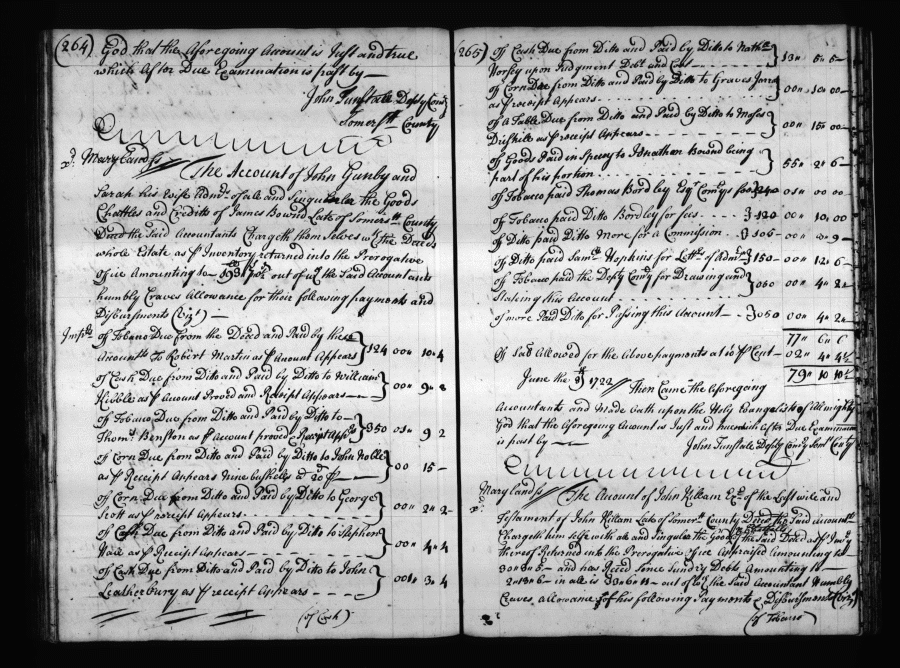 (264) God that the Aforegoing Account is Just and true
which After Due Examination is past by —
John Tunstale Depty Comry
Somerstt County
Maryland ss
The Account of John Gunby and
Sarah his Wife Admrs of all and Singular the Goods
Chattles and Credits of James Bownd Late of Somerstt County
Deced the Said Accountants Chargeth them Selves wth the Deceds
whole Estate as pr Inventory returned into the Prerogative
Office Amounting to out of wch the Said Accountants
humbly Craves Allowance for their following payments and
Disbursments (Vizt) —
Imprs Of Tobacco Due from the Deced and Paid by these
Accountts to Robert Martin as pr Account Appears } 124 00" 10" 4
Of Cash Due from Ditto and Paid by Ditto to William
Kibble as pr Account Proved and Receipt Appears — } 00" 9" 2
Of Tobacco Due from Ditto and Paid by Ditto to —
Thoms Benston as pr Account proved & Receipt Apprs } 350 01" 9 2
Of Corn Due from Ditto and Paid by Ditto to John Nolle
as pr Receipt Appears Nine bushells a 20d pr — } 00 15" —
Of Corn Due from Ditto and Paid by Ditto to George
Scott as pr receipt Appears - - - - } 00" 2" 2 -
Of Cash Due from Ditto and Paid by Ditto to Stephen
Hall as pr Receipt Appears — } 00" 4" 4
Of Cash Due from Ditto and Paid by Ditto to John
Leatherbury as pr receipt Appears - - - } 00" 3" 4
(of Cash)
(265) Of Cash Due from Ditto and Paid by Ditto to Nathll
Horsey upon Judgment Debt and Cost — } 13" 5" 5 -
Of Corn Due from Ditto and Paid by Ditto to Graves
as pr receipt Appears - - - } 00" 10" 00 -
Of a Table Due from Ditto and Paid by Ditto to Moses
Driskill as pr receipt Appears - - - } 00" 15" 00 -
Of Goods Paid in Specey to Jonathan Bownd being
part of his portion - - - } 55" 2" 6 -
Of Tobacco paid Thomas Bordley Esqr Comrys fees } 240 01" 00 00 -
Of Tobacco paid Ditto Bordley for fees - - - } 120 00" 10" 00
Of Ditto paid Ditto More for a Commission - } 105 - 00" 8" 9 -
Of Ditto paid Samll Hopkins for Lettrs of Admrn } 150 - 00" 12" 6
Of Tobacco paid the Depty Comry for Drawing and
Stateing this Account - - - } 050 00" 4" 2
Of more Paid Ditto for Passing this Account — } 050 00" 4" 2
77" 6" 6
Of Sallry Allowed for the Above payments at 10 pr Cent — 02" 4" 4½
79" 10 10½
June the 1722 Then Came the Aforegoing
Accountants and Made Oath upon the Holy Evangelists of Almighty
God that the Aforegoing Account is Just and true which After Due Examination
is past by — John Tunstale Depty Comry Somt County
Maryland ss The Account of John Killam Exr of the Last will and
Testament of John Killam Late of Somerstt County Deced the Said Accountt
Chargeth him Selfe with all and Singular the Goods of the Said Deced as pr Invry
thereof Returned into the Prerogative Office Appraised Amounting to
30"0"5 - and has Reced Some Sundry Debts Amounting to —
in all is out of wch the Said Accountant Humbly
Craves allowance of his following Payments & Disbursments (Viz)
(of Tobacco)